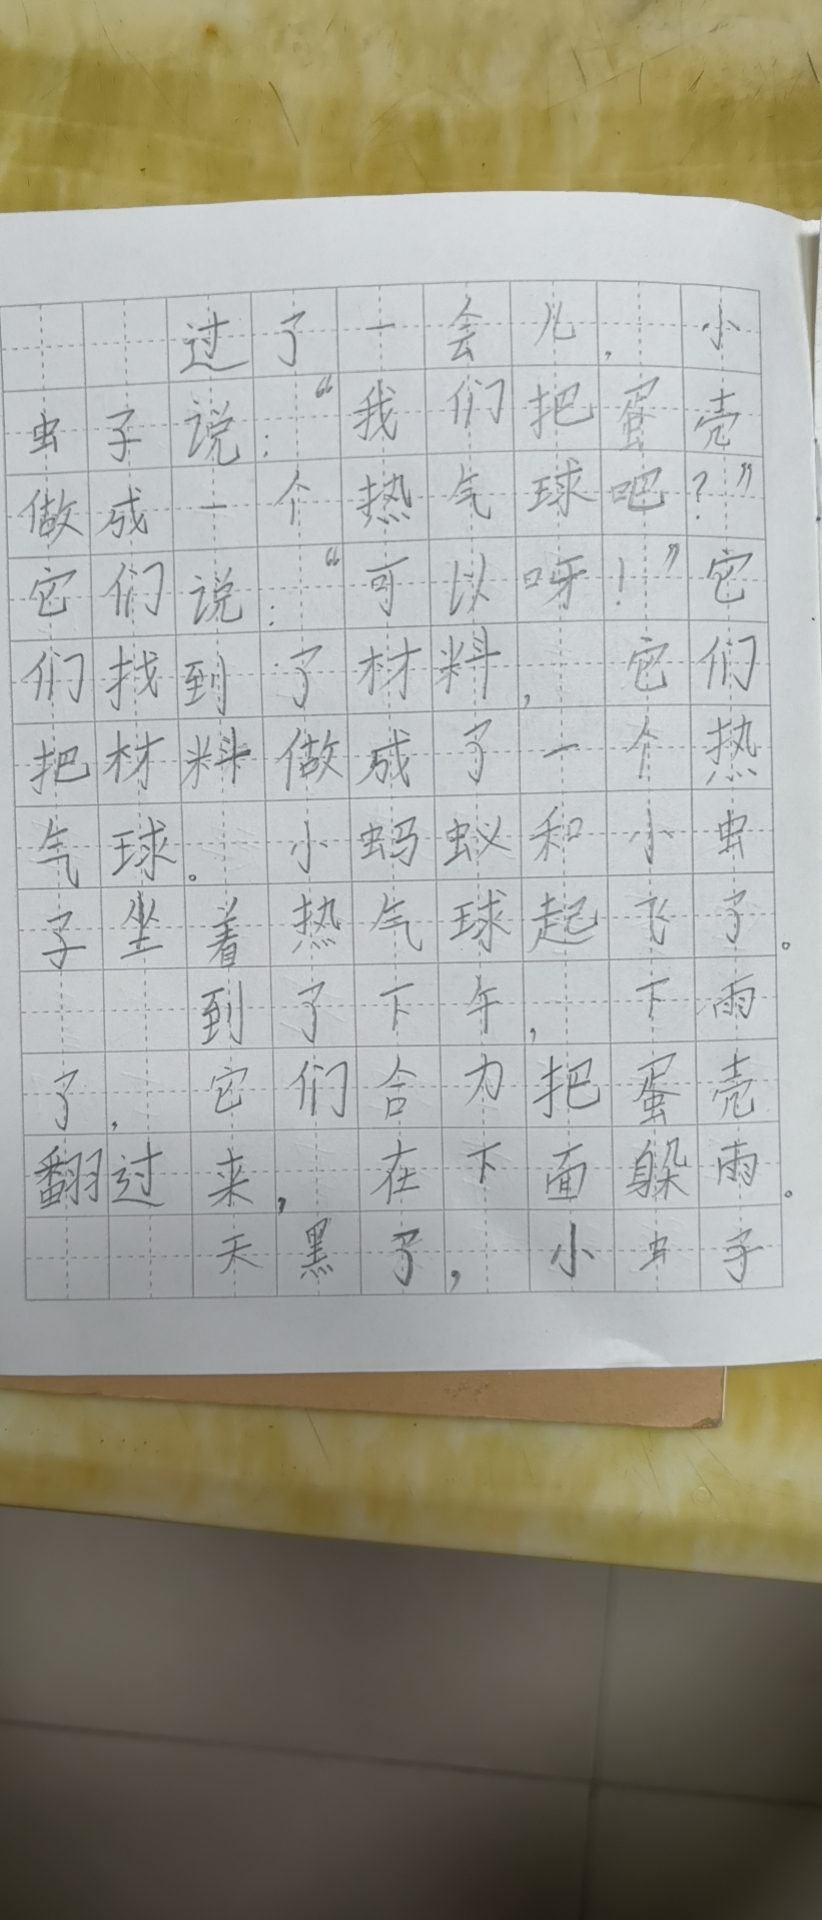 过了一会儿，小
虫子说：“我们把蛋壳
做成一个热气球吧？”
它们说：“可以呀！”它
们找到了材料，它们
把材料做成了一个热
气球。小蚂蚁和小虫
子坐着热气球起飞了。
到了下午，下雨
了，它们合力把蛋壳
翻过来，在下面躲雨。
天黑了，小虫子